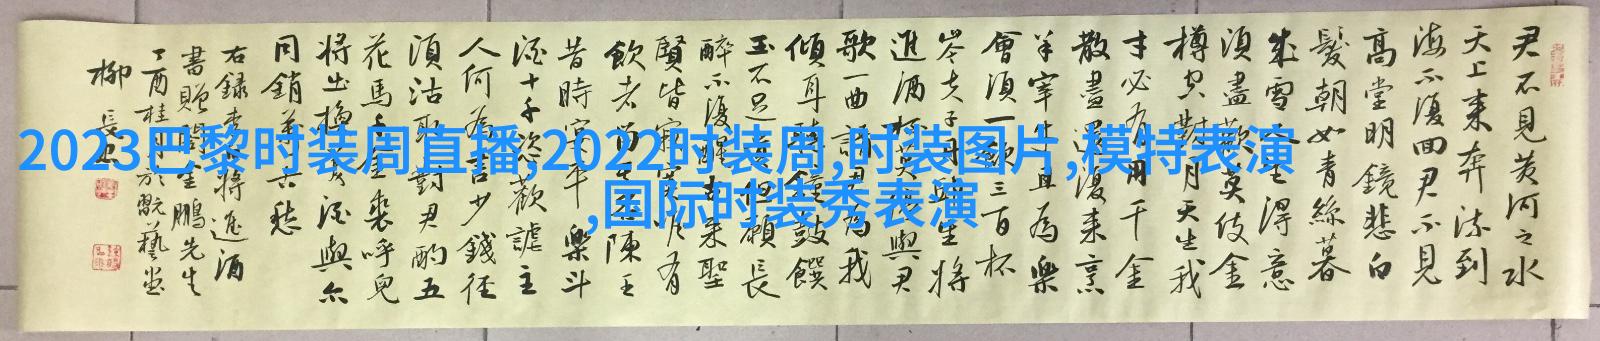 君不見黄河之水
天上来奔流到
海不復回君不見
高堂明鏡悲白
髮朝如青絲暮
成雪人生得意
須盡歡莫使金
樽空對月天生我
才必有用千金
散盡還復来烹
羊宰牛且為樂
會須一飲三百杯
岑夫子丹丘生將
進酒杯莫停與君
歌一曲請君為我
傾耳聽鐘鼓饌
玉不足貴但願長
醉不復醒古来聖
賢皆寂寞惟有
飲者留其名陳王
昔時宴平樂斗
酒十千恣歡謔主
人何為言少錢径
須沽取對君酌五
花馬千金裘呼兒
將出換美酒與尔
同銷萬古愁
右録李白將進酒
書贈生鵬先生
丁酉桂月於翫藝堂
柳長忠
2023巴黎时装周直播,2022时装周,时装图片,模特表演
,国际时装秀表演